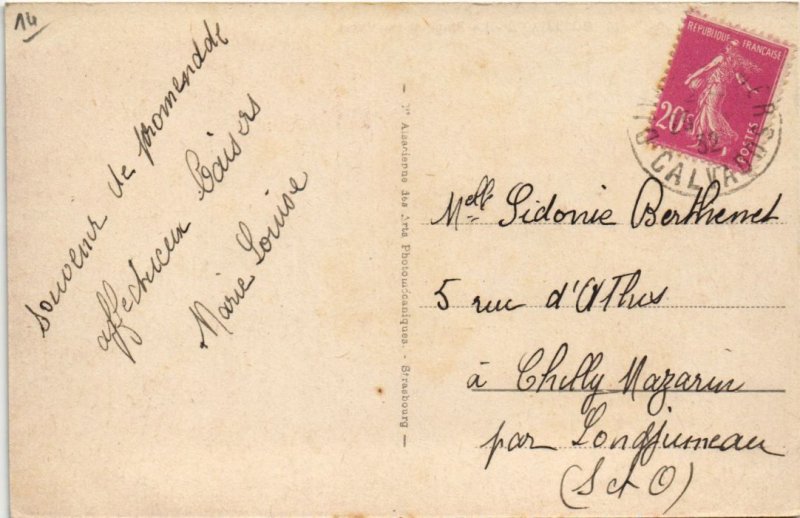 14
souvenir de promenadde
affectueux Baisers
Marie Louise
— Cie Alsacienne des Arts Photomécaniques. - Strasbourg —
REPUBLIQUE FRANÇAISE
20c
POSTES
CALVADOS
Melle Sidonie Berthenet
5 rue d'Athis
à Chilly Mazarin
par Longjumeau
(S et O)